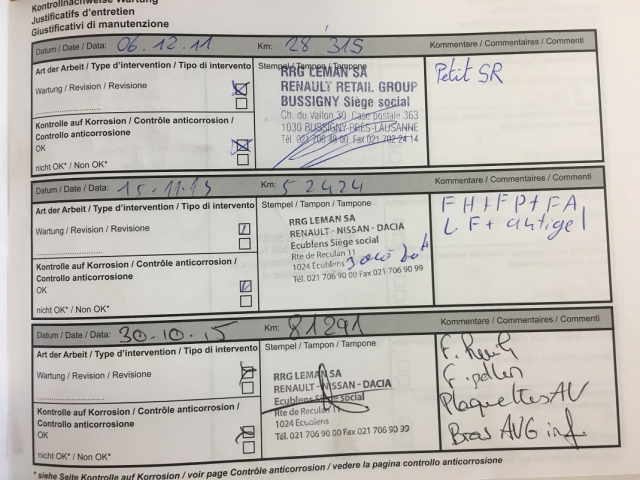 Kontrollnachweise Wartung
Justificatifs d'entretien
Giustificativi di manutenzione
Datum / Date / Data: 06.12.11 Km: 28 315 Kommentare / Commentaires / Commenti
Art der Arbeit / Type d'intervention / Tipo di intervento
Stempel / Tampon / Tampone
Petit SR
Wartung / Revision / Revisione
RRG LEMAN SA
RENAULT RETAIL GROUP
BUSSIGNY Siège social
Ch. du Vallon 30 Case postale 363
1030 BUSSIGNY-PRÈS-LAUSANNE
Kontrolle auf Korrosion / Contrôle anticorrosion /
Controllo anticorrosione
OK
nicht OK* / Non OK*
Datum / Date / Data: 15.11.13 Km: 52424 Kommentare / Commentaires / Commenti
Art der Arbeit / Type d'intervention / Tipo di intervento
Stempel / Tampon / Tampone
FH+FP+FA
LF+antigel
Wartung / Revision / Revisione
RRG LEMAN SA
RENAULT - NISSAN - DACIA
Ecublens Siège social
Rte de Reculan 11
1024 Ecublens
Tél. 021 706 90 00 Fax 021 706 90 99
Kontrolle auf Korrosion / Contrôle anticorrosion /
Controllo anticorrosione
OK
nicht OK* / Non OK*
Datum / Date / Data: 30-10-15 Km: 81291 Kommentare / Commentaires / Commenti
Art der Arbeit / Type d'intervention / Tipo di intervento
Stempel / Tampon / Tampone
F. pollen
Plaquettes AV
Bras AVG inf.
Wartung / Revision / Revisione
RRG LEMAN SA
RENAULT - NISSAN - DACIA
Ecublens Siège social
Rte de Reculan 11
1024 Ecublens
Tél. 021 706 90 00 Fax 021 706 90 99
Kontrolle auf Korrosion / Contrôle anticorrosion /
Controllo anticorrosione
OK
nicht OK* / Non OK*
* siehe Seite Kontrolle auf Korrosion / voir page Contrôle anticorrosion / vedere la pagina controllo anticorrosione